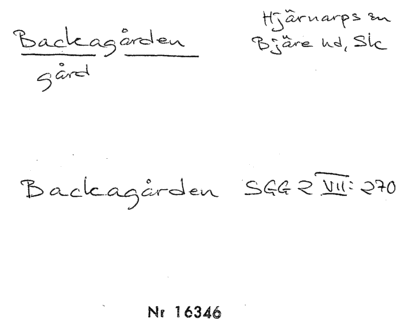 Backagården
gård
Hjärnarps sn
Bjäre hd, Sk
Backagården SGG 2 VII: 270
Nr 16346